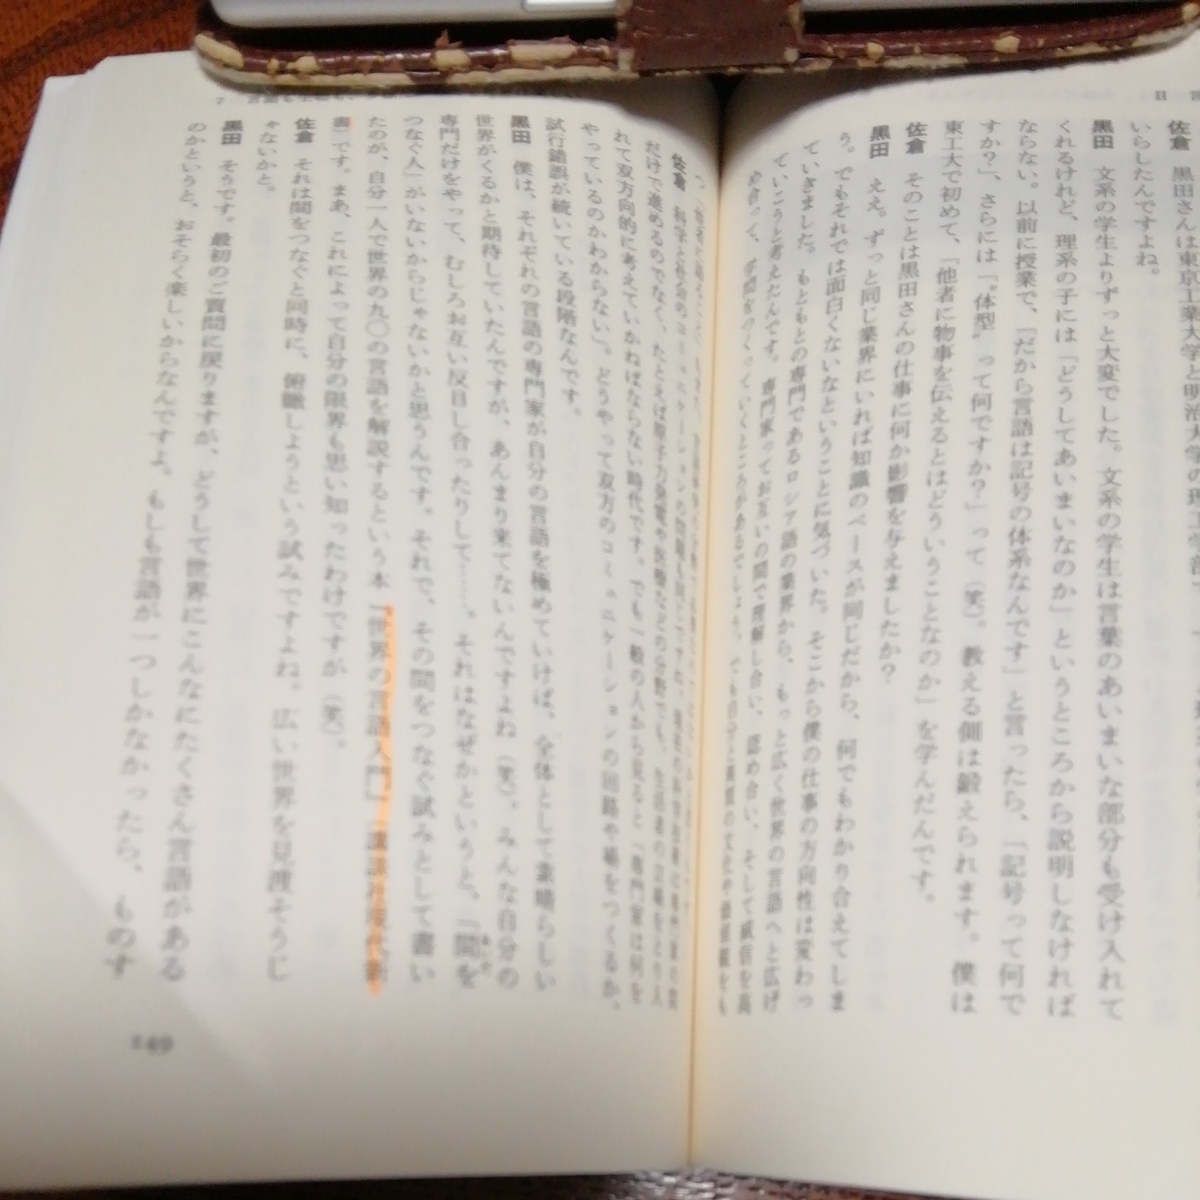 佐倉 黒田さんは東京工業大学と明治大学の理工学部
いらしたんですよね。
黒田 文系の学生よりずっと大変でした。文系の学生は言葉のあいまいな部分も受け入れて
くれるけれど、理系の子には「どうしてあいまいなのか」というところから説明しなければ
ならない。以前に授業で、「だから言語は記号の体系なんです」と言ったら、「記号って何で
すか?」、さらには「“体型”って何ですか?」って(笑)。教える側は鍛えられます。僕は
東工大で初めて、「他者に物事を伝えるとはどういうことなのか」を学んだんです。
佐倉 そのことは黒田さんの仕事に何か影響を与えましたか?
黒田 ええ。ずっと同じ業界にいれば知識のベースが同じだから、何でもわかり合えてしま
う。でもそれでは面白くないなということに気づいた。そこから僕の仕事の方向性は変わっ
ていきました。もともとの専門であるロシア語の業界から、もっと広く世界の言語へと広げ
ていこうと考えたんです。専門家ってお互いの間で理解し合い、認め合い、そして威信を高
め合って、学問をつくっていくところがあるでしょう。でも
佐倉 科学と社会のコミュニケーションの問題も
だけで進めるのでなく、たとえば原子力発電や医療などの分野でも、生活者の立場をとり入
れて双方向的に考えていかねばならない時代です。でも一般の人から見ると「専門家は何を
やっているのかわからない」。どうやって双方のコミュニケーションの回路や場をつくるか、
試行錯誤が続いている段階なんです。
黒田 僕は、それぞれの言語の専門家が自分の言語を極めていけば、全体として素晴らしい
世界がくるかと期待していたんですが、あんまり来てないんですよね(笑)。みんな自分の
専門だけをやって、むしろお互い反目し合ったりして……。それはなぜかというと、「間を
つなぐ人」がいないからじゃないかと思うんです。それで、その間をつなぐ試みとして書い
たのが、自分一人で世界の九〇の言語を解説するという本『世界の言語入門』(講談社現代新
書)です。まあ、これによって自分の限界も思い知ったわけですが(笑)。
佐倉 それは間をつなぐと同時に、俯瞰しようという試みですよね。広い世界を見渡そうじ
ゃないかと。
黒田 そうです。最初のご質問に戻りますが、どうして世界にこんなにたくさん言語がある
のかというと、おそらく楽しいからなんですよ。もしも言語が一つしかなかったら、ものす
149